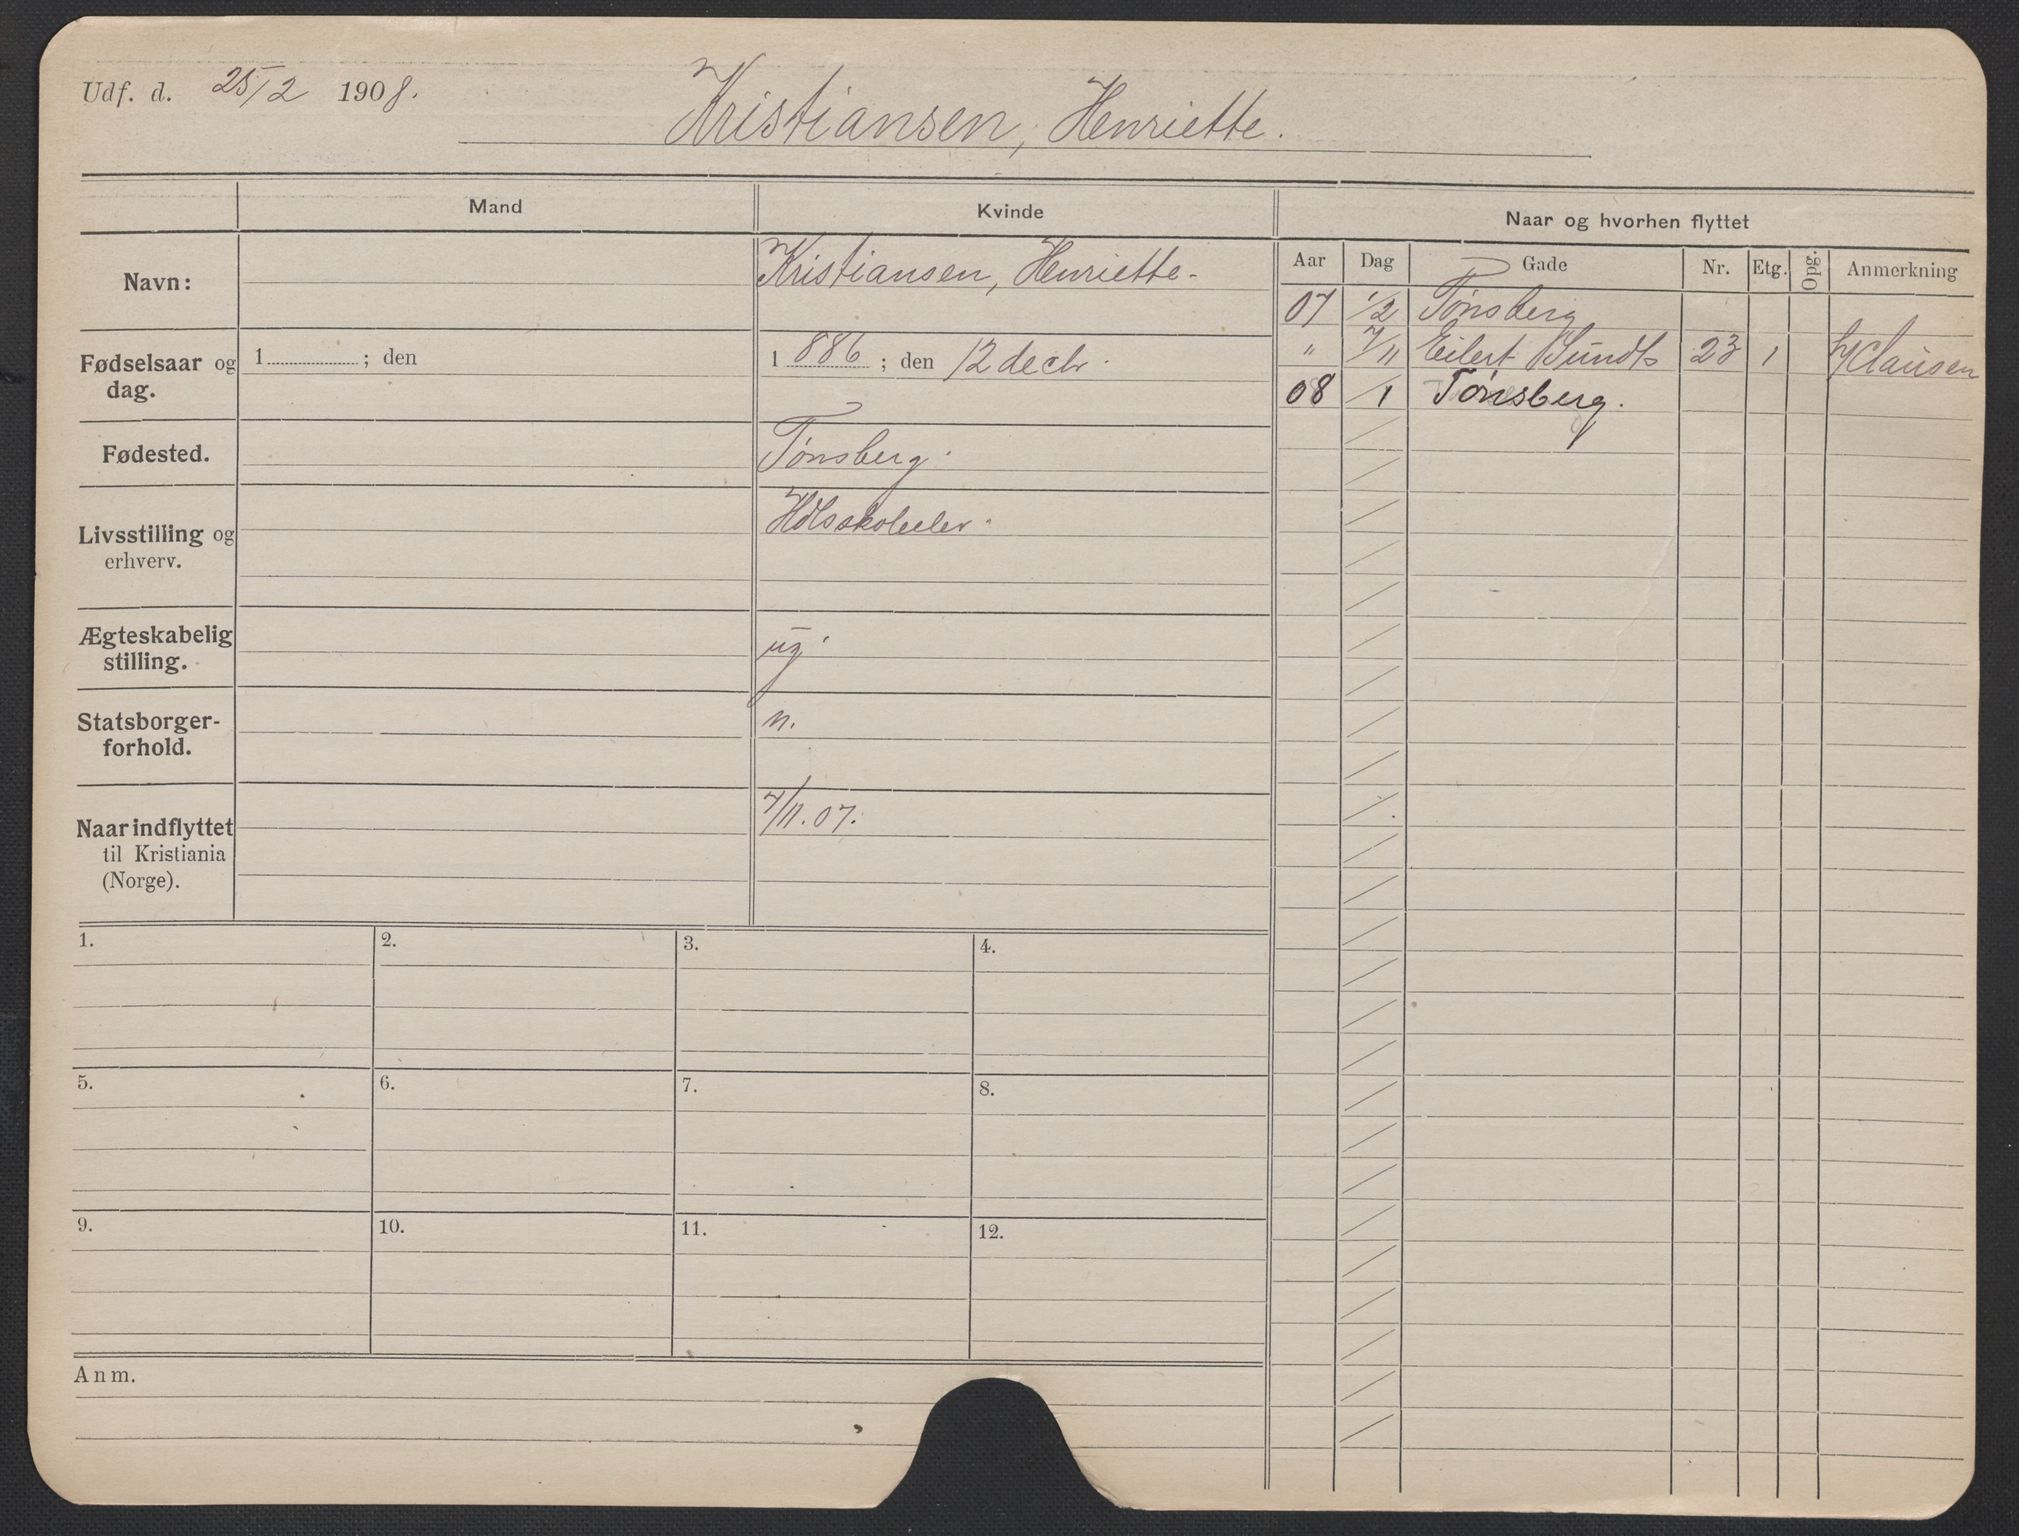 Udf. d. 25/2 1908.
Kristiansen, Henriette.
Mand Kvinde Naar og hvorhen flyttet
Aar Dag Gade Nr. Etg. Opg. Anmerkning
Navn: Kristiansen, Henriette.
07 1/2 Tønsberg
Fødselsaar og dag. 1 ; den 1 886 ; den 12 decbr.
" 7/11 Eilert Sundts 23 1 h/Clausen
08 /1 Tønsberg.
Fødested. Tønsberg.
Livsstilling og Hdlsskoleelev.
erhverv.
Ægteskabelig ug.
stilling.
Statsborger- n.
forhold.
Naar indflyttet 7/11. 07.
til Kristiania
(Norge).
1. 2. 3. 4.
5. 6. 7. 8.
9. 10. 11. 12.
Anm.